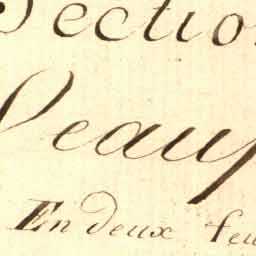 Section
Beaup
En deux feu